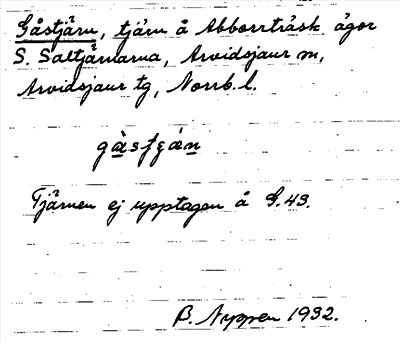 Gåstjärn, tjärn å Abborrträsk ägor
S. Saltjärnarna, Arvidsjaur sn,
Arvidsjaur tg, Norrb. l.
Tjärnen ej upptagen å G.43.
B. Nyppen 1932.